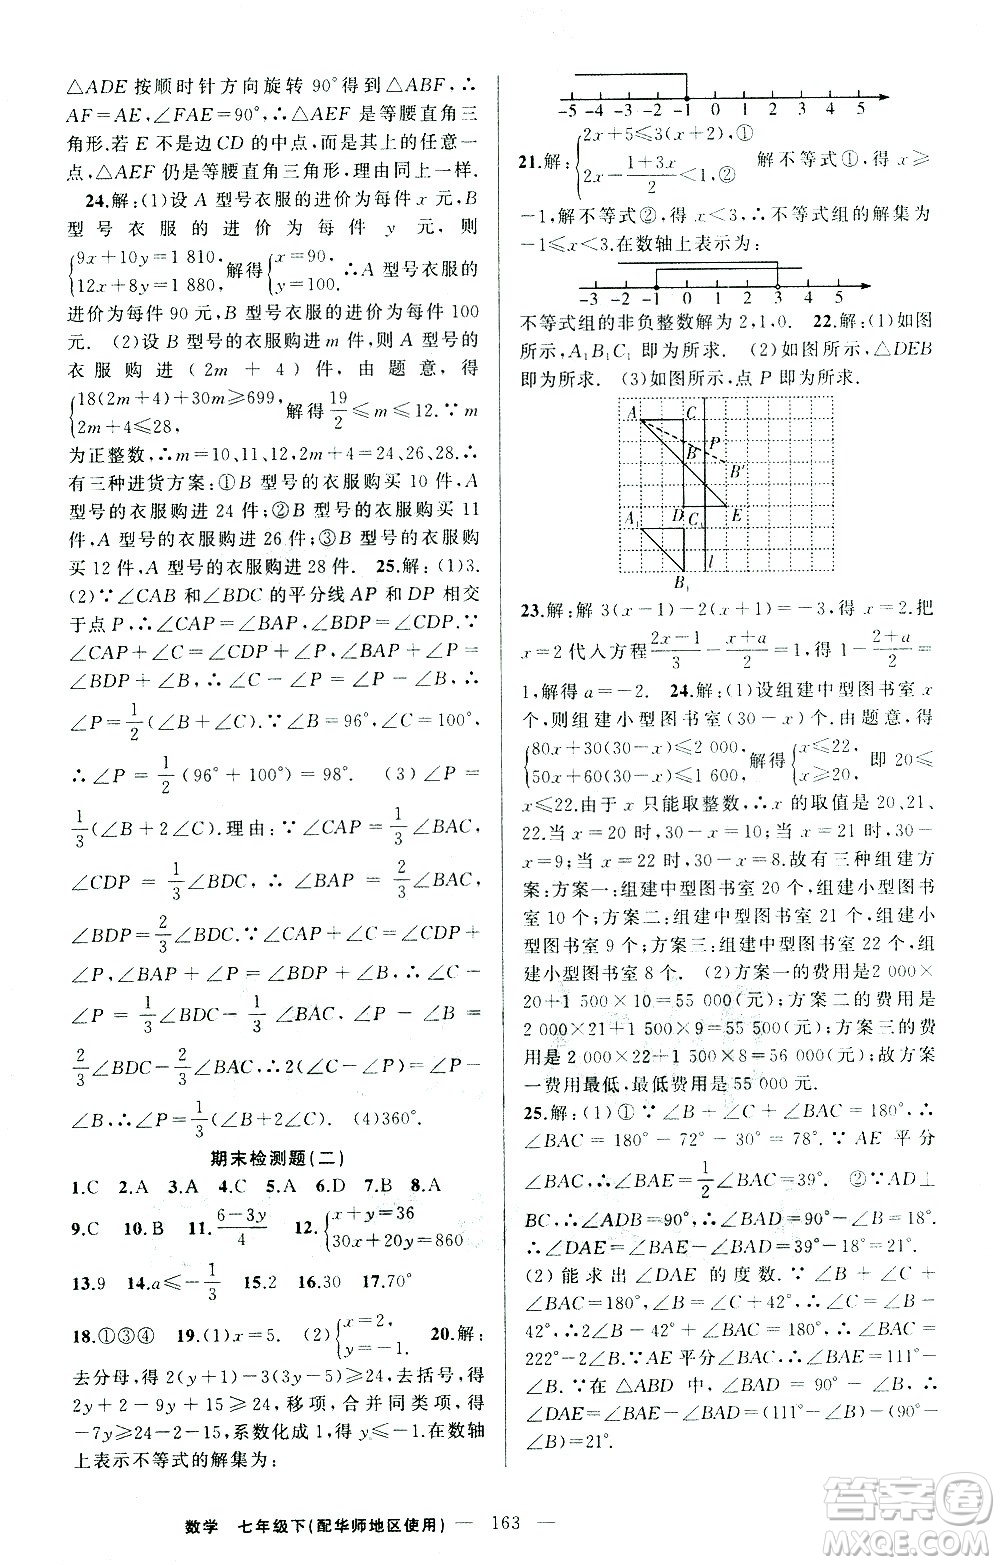 △ADE按顺时针方向旋转90°得到△ABF,∴
AF=AE,∠FAE=90°,∴△AEF是等腰直角三
角形.若E不是边CD的中点,是其上的任意一
点,△AEF仍是等腰直角三角形,理由同上一样.
24.解:(1)设A型号衣服的进价为每件x元,B
型号衣服的进价为每件y元,则
{9x+10y=1 810,12x+8y=1 880,解得{x=90,y=100.∴A型号衣服的
进价为每件90元,B型号衣服的进价为每件100
元. (2)设B型号衣服购进m件,则A型号的
衣服购进(2m+4)件,由题意,得
{18(2m+4)+30m≥699,2m+4≤28,解得19/2≤m≤12.∵m
为正整数,∴m=10、11、12,2m+4=24、26、28.∴
有三种进货方案:①B型号的衣服购买10件,A
型号的衣服购进24件;②B型号的衣服购买11
件,A型号的衣服购进26件;③B型号的衣服购
买12件,A型号的衣服购进28件. 25.解:(1)3.
(2)∵∠CAB和∠BDC的平分线AP和DP相交
于点P,∴∠CAP=∠BAP,∠CDP=∠BDP.∵
∠CAP+∠C=∠CDP+∠P,∠BAP+∠P=
∠BDP+∠B,∴∠C-∠P=∠P-∠B,∴
∠P=1/2(∠B+∠C).∵∠B=96°,∠C=100°,
∴∠P=1/2(96°+100°)=98°. (3)∠P=
1/3(∠B+2∠C).理由:∵∠CAP=1/3∠BAC,
∠CDP=1/3∠BDC,∴∠BAP=2/3∠BAC,
∠BDP=2/3∠BDC.∵∠CAP+∠C=∠CDP+
∠P,∠BAP+∠P=∠BDP+∠B,∴∠C-
∠P=1/3∠BDC-1/3∠BAC,∠P-∠B=
2/3∠BDC-2/3∠BAC,∴2(∠C-∠P)=∠P-
∠B,∴∠P=1/3(∠B+2∠C). (4)360°.
期末检测题(二)
1.C 2.A 3.A 4.C 5.A 6.D 7.B 8.A
9.C 10.B 11.6-3y/4 12.{x+y=36,30x+20y=860
13.9 14.a≤-1/3 15.2 16.30 17.70°
18.①③④ 19.(1)x=5. (2){x=2,y=-1. 20.解:
去分母,得2(y+1)-3(3y-5)≥24,去括号,得
2y+2-9y+15≥24,移项、合并同类项,得
-7y≥24-2-15,系数化成1,得y≤-1.在数轴
上表示不等式的解集为:
-5 -4 -3 -2 -1 0 1 2 3 4 5
21.解:{2x+5≤3(x+2),①2x-1+3x/2<1,②解不等式①,得x≥
-1,解不等式②,得x<3,∴不等式组的解集为
-1≤x<3,在数轴上表示为:
-3 -2 -1 0 1 2 3 4 5
不等式组的非负整数解为2,1,0. 22.解:(1)如图
所示,A₁B₁C₁即为所求. (2)如图所示,△DEB
即为所求. (3)如图所示,点P即为所求.
A C
B P
B'
A₁ D C₁ E
B₁ l
23.解:解3(x-1)-2(x+1)=-3,得x=2.把
x=2代入方程2x-1/3-x+a/2=1,得1-2+a/2=
1,解得a=-2. 24.解:(1)设组建中型图书室x
个,则组建小型图书室(30-x)个.由题意,得
{80x+30(30-x)≤2 000,50x+60(30-x)≤1 600,解得{x≤22,x≥20.即20≤
x≤22.由于x只能取整数,∴x的取值是20、21、
22.当x=20时,30-x=10;当x=21时,30
-x=9;当x=22时,30-x=8.故有三种组建方
案:方案一:组建中型图书室20个,组建小型图书
室10个;方案二:组建中型图书室21个,组建小
型图书室9个;方案三:组建中型图书室22个,组
建小型图书室8个. (2)方案一的费用是2 000×
20+1 500×10=55 000(元);方案二的费用是
2 000×21+1 500×9=55 500(元);方案三的费
用是2 000×22+1 500×8=56 000(元).故方案
一费用最低,最低费用是55 000元.
25.解:(1)①∵∠B+∠C+∠BAC=180°,∴
∠BAC=180°-72°-30°=78°.∵AE平分
∠BAC,∴∠BAE=1/2∠BAC=39°. ②∵AD⊥
BC,∴∠ADB=90°,∴∠BAD=90°-∠B=18°.
∴∠DAE=∠BAE-∠BAD=39°-18°=21°.
(2)能求出∠DAE的度数.∵∠B+∠C+
∠BAC=180°,∠B=∠C+42°,∴∠C=∠B-
42°,∴2∠B+∠BAC=222°,∴∠BAC=
222°-2∠B.∵AE平分∠BAC,∴∠BAE=111°
-∠B.∵在△ABD中,∠BAD=90°-∠B,∴
∠DAE=∠BAE-∠BAD=(111°-∠B)-(90°-
∠B)=21°.
数学 七年级下(配华师地区使用) — 163 —
答案圈